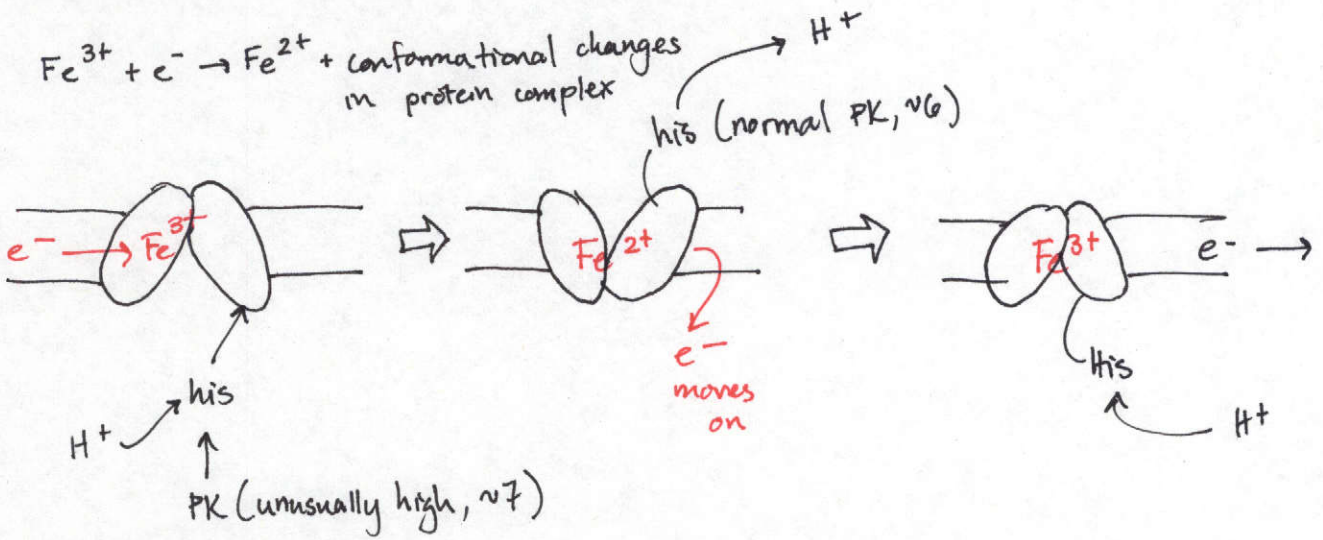 Fe³⁺ + e⁻ → Fe²⁺ + conformational changes
in protein complex
H⁺
his (normal PK, ~6)
e⁻ → Fe³⁺
Fe²⁺
e⁻
moves
on
Fe³⁺
e⁻ →
his
H⁺
PK (unusually high, ~7)
His
H⁺